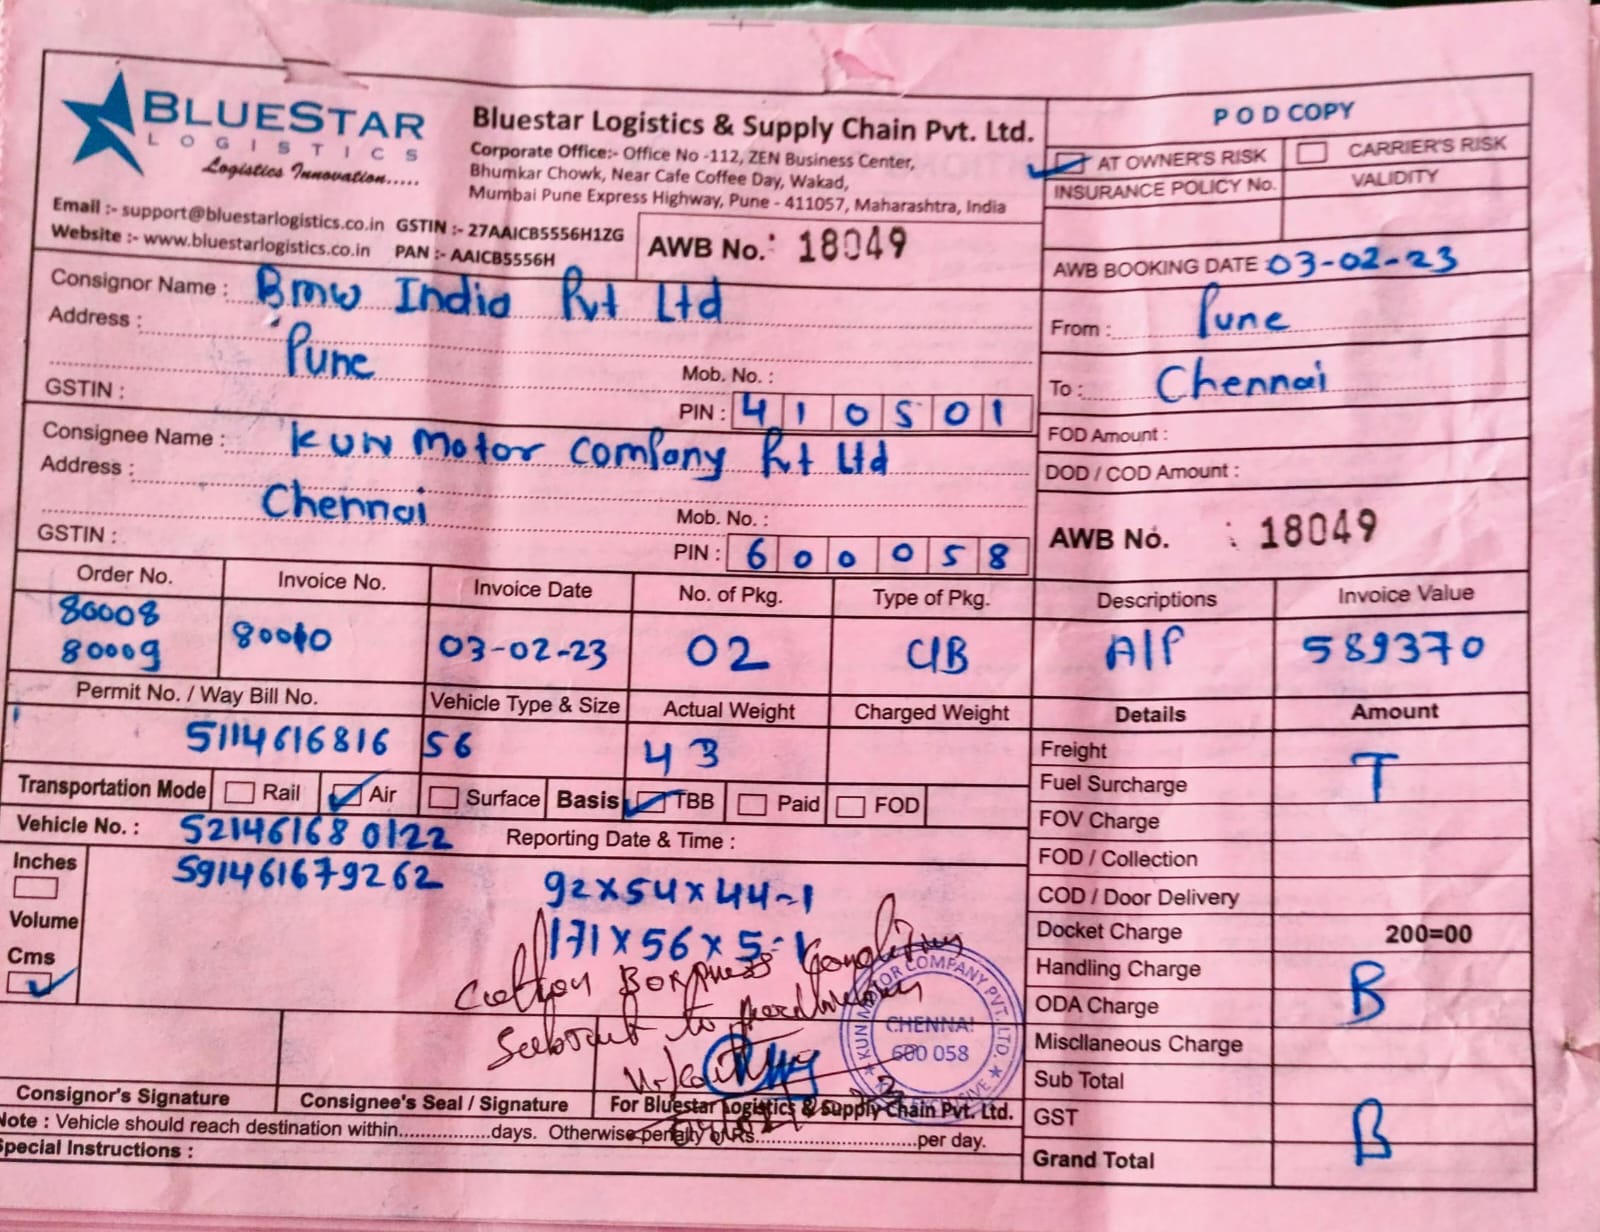 BLUESTAR
LOGISTICS
Logistics Innovation.....
Email :- support@bluestarlogistics.co.in GSTIN :- 27AAICB5556H1ZG
Website :- www.bluestarlogistics.co.in PAN :- AAICB5556H
Bluestar Logistics & Supply Chain Pvt. Ltd.
Corporate Office:- Office No -112, ZEN Business Center,
Bhumkar Chowk, Near Cafe Coffee Day, Wakad,
Mumbai Pune Express Highway, Pune - 411057, Maharashtra, India
AWB No. : 18049
POD COPY
AT OWNER'S RISK CARRIER'S RISK
INSURANCE POLICY No. VALIDITY
AWB BOOKING DATE 03-02-23
From : Pune
To : Chennai
FOD Amount :
DOD / COD Amount :
AWB No. : 18049
Consignor Name : Bmw India Pvt Ltd
Address : Pune
Mob. No. :
GSTIN : PIN : 410501
Consignee Name : KUN Motor Company Pvt Ltd
Address : Chennai
Mob. No. :
GSTIN : PIN : 600058
Order No. Invoice No. Invoice Date No. of Pkg. Type of Pkg. Descriptions Invoice Value
80008
80009 80010 03-02-23 02 C/B A/P 589370
Permit No. / Way Bill No. Vehicle Type & Size Actual Weight Charged Weight Details Amount
5114616816 56 43
Transportation Mode Rail Air Surface Basis TBB Paid FOD
Vehicle No. : 521461680122 Reporting Date & Time :
591461679262
Inches
Volume
Cms
92x54x44-1
171x56x5-1
Freight
Fuel Surcharge T
FOV Charge
FOD / Collection
COD / Door Delivery
Docket Charge 200=00
Handling Charge
ODA Charge B
Miscllaneous Charge
Sub Total
GST B
Grand Total
KUN MOTOR COMPANY PVT. LTD.
CHENNAI
600 058
Consignor's Signature Consignee's Seal / Signature For Bluestar Logistics & Supply Chain Pvt. Ltd.
Note : Vehicle should reach destination within................days. Otherwise penalty of Rs...........................per day.
Special Instructions :